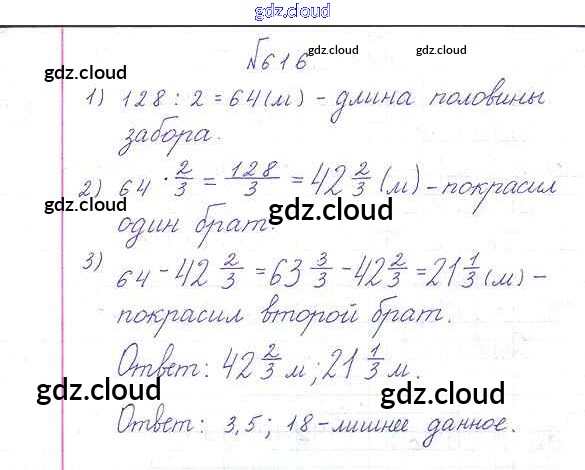 gdz.cloud
№616
gdz.cloud gdz.cloud
gdz.cloud gdz.cloud
1) 128 : 2 = 64 (м) - длина половины
забора.
gdz.cloud
2) 64 · 2/3 = 128/3 = 42 2/3 (м) - покрасил
gdz.cloud gdz.cloud
один брат.
3) 64 - 42 2/3 = 63 3/3 - 42 2/3 = 21 1/3 (м) -
покрасил второй брат.
Ответ: 42 2/3 м; 21 1/3 м.
gdz.cloud gdz.cloud gdz.cloud
Ответ: 3,5; 18 - лишнее данное.